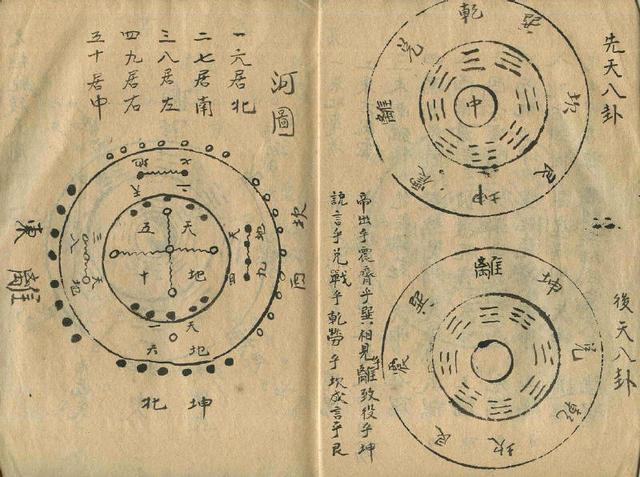 先天八卦
乾
巽
坎
艮
坤
震
離
兌
中
後天八卦
離
坤
兌
乾
坎
艮
震
巽
帝出乎震齊乎巽相見乎離致役乎坤
說言乎兌戰乎乾勞乎坎成言乎艮
河圖
一六居北
二七居南
三八居左
四九居右
五十居中
地七
天二
坎西
地九
天四
天地
五十
天三
地八
東離
天一
地六
北坤